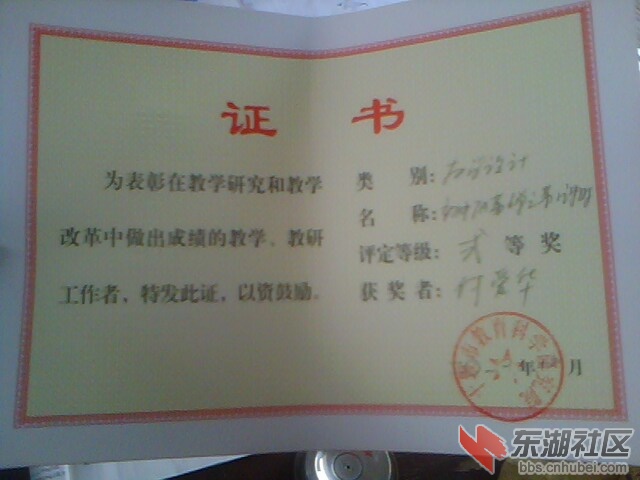 证 书
为表彰在教学研究和教学
改革中做出成绩的教学、教研
工作者，特发此证，以资鼓励。
类 别：
名 称：
评定等级：贰 等 奖
获 奖 者：付爱华
年 月
东湖社区
bbs.cnhubei.com